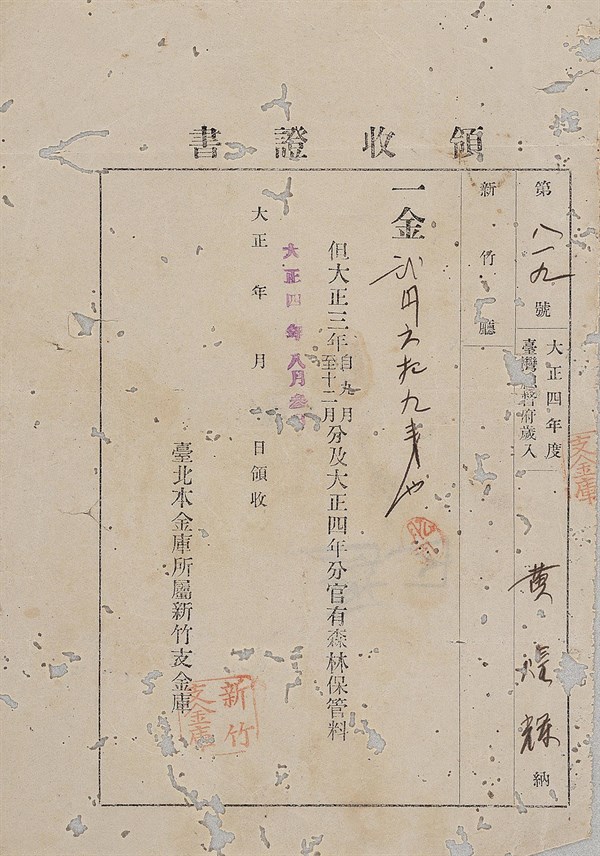 領收證書
第八一九號
大正四年度
臺灣總督府歲入
黄煌輝 納
新竹廳
一金 弐円六拾九銭也
但大正三年自九月至十二月分及大正四年分官有森林保管料
大正四年八月
大正 年 月 日領收
臺北本金庫所屬新竹支金庫
新竹
支金庫
支金庫